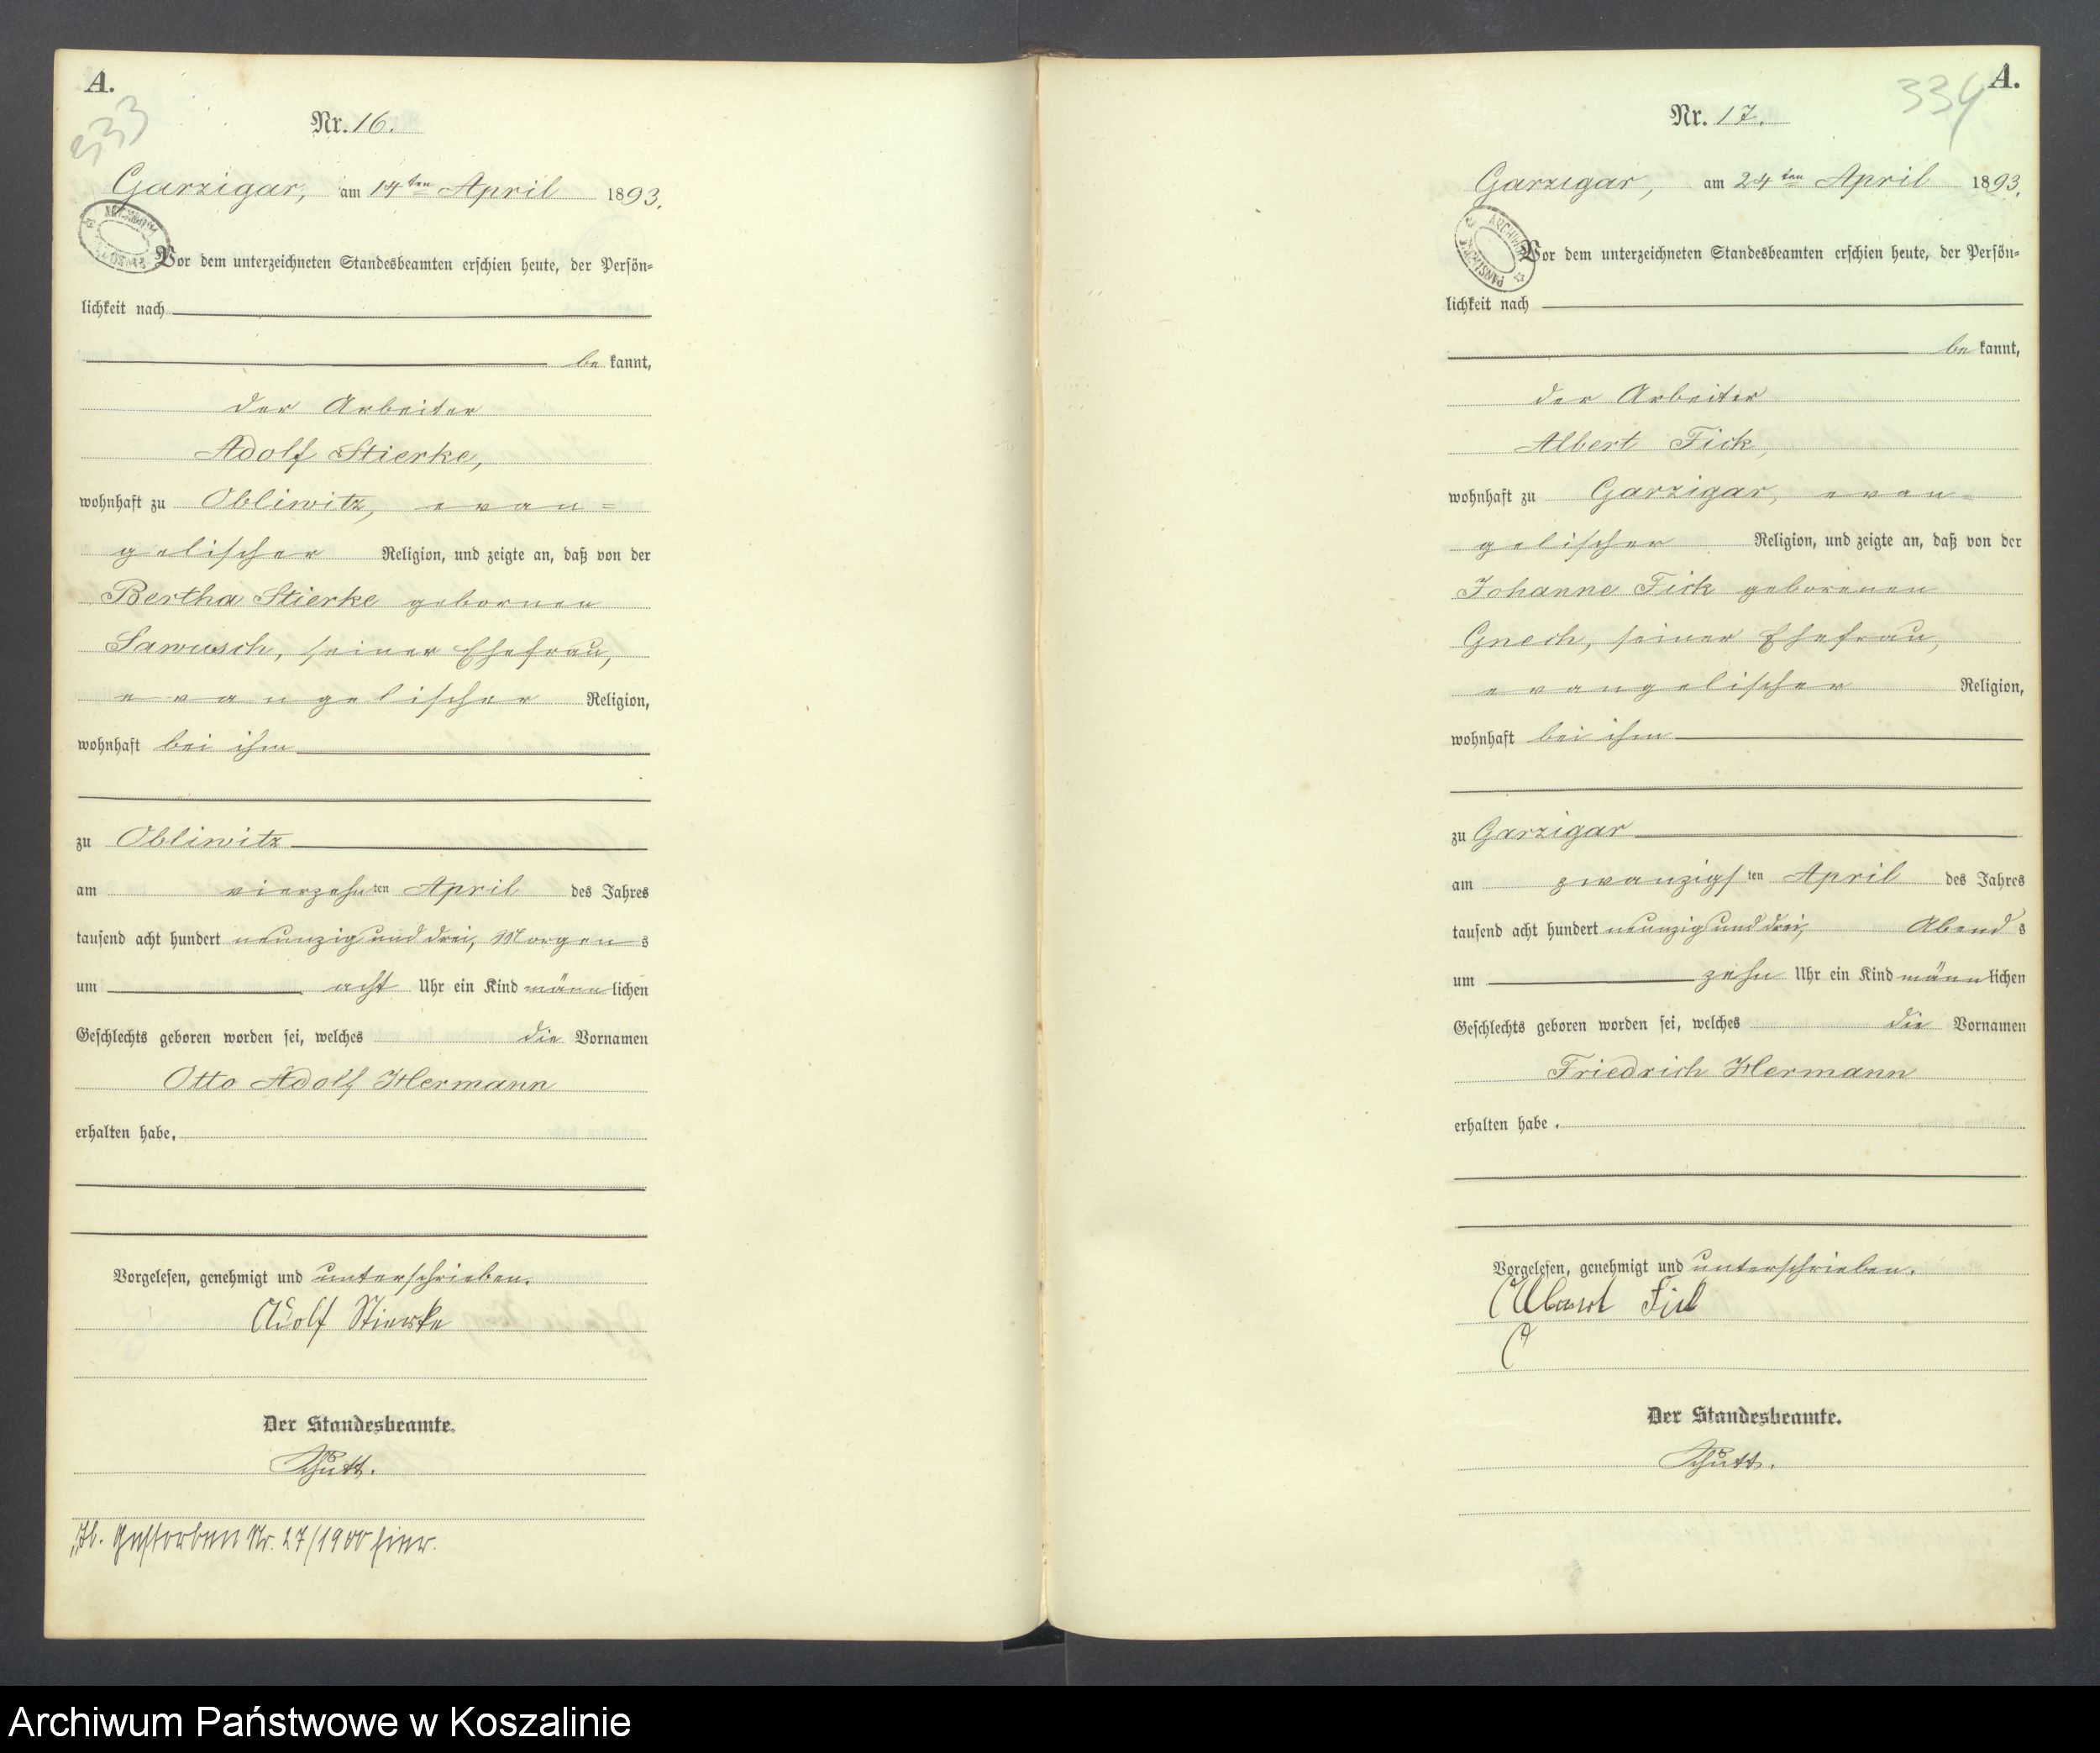 A.
333
Nr. 16.
Garzigar, am 14ten April 1893.
Vor dem unterzeichneten Standesbeamten erschien heute, der Persön=
lichkeit nach
bekannt,
der Arbeiter
Adolf Stierke,
wohnhaft zu Obliwitz, evan=
gelischer Religion, und zeigte an, daß von der
Bertha Stierke gebornen
Sawusch, seiner Ehefrau,
evangelischer Religion,
wohnhaft bei ihm
zu Obliwitz
am vierzehnten April des Jahres
tausend acht hundert neunzig und drei, Morgens
um acht Uhr ein Kind männlichen
Geschlechts geboren worden sei, welches die Vornamen
Otto Adolf Hermann
erhalten habe.
Vorgelesen, genehmigt und unterschrieben.
Adolf Stierke
Der Standesbeamte.
Schütt.
Gestorben Nr. 27/1900 hier.
A.
334
Nr. 17.
Garzigar, am 24ten April 1893.
Vor dem unterzeichneten Standesbeamten erschien heute, der Persön=
lichkeit nach
bekannt,
der Arbeiter
Albert Fick,
wohnhaft zu Garzigar, evan=
gelischer Religion, und zeigte an, daß von der
Johanne Fick geborenen
Gnech, seiner Ehefrau,
evangelischer Religion,
wohnhaft bei ihm
zu Garzigar
am zwanzigsten April des Jahres
tausend acht hundert neunzig und drei, Abends
um zehn Uhr ein Kind männlichen
Geschlechts geboren worden sei, welches die Vornamen
Friedrich Hermann
erhalten habe.
Vorgelesen, genehmigt und unterschrieben.
Albert Fick
Der Standesbeamte.
Schütt.
Archiwum Państwowe w Koszalinie